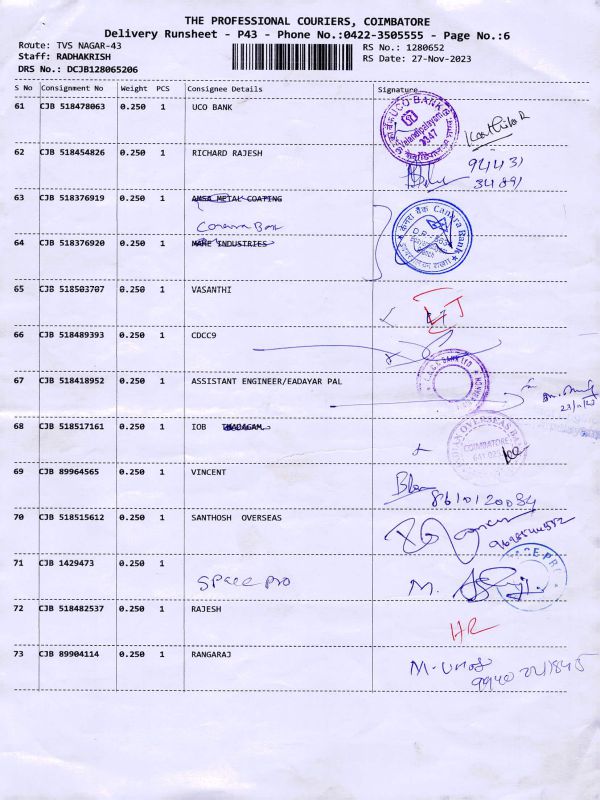 THE PROFESSIONAL COURIERS, COIMBATORE
Delivery Runsheet - P43 - Phone No.:0422-3505555 - Page No.:6
Route: TVS NAGAR-43
RS No.: 1280652
Staff: RADHAKRISH
RS Date: 27-Nov-2023
DRS No.: DCJB128065206
S No Consignment No Weight PCS Consignee Details Signature
61 CJB 518478063 0.250 1 UCO BANK
UCO BANK
62 CJB 518454826 0.250 1 RICHARD RAJESH
94431
34891
63 CJB 518376919 0.250 1 AMSA METAL COATING
Canara Bank
Canara Bank
64 CJB 518376920 0.250 1 MAHE INDUSTRIES
65 CJB 518503707 0.250 1 VASANTHI
66 CJB 518489393 0.250 1 CDCC9
67 CJB 518418952 0.250 1 ASSISTANT ENGINEER/EADAYAR PAL
68 CJB 518517161 0.250 1 IOB THADAGAM
INDIAN OVERSEAS BANK
COIMBATORE
69 CJB 89964565 0.250 1 VINCENT
8610120034
70 CJB 518515612 0.250 1 SANTHOSH OVERSEAS
71 CJB 1429473 0.250 1
Space Pro
M.
72 CJB 518482537 0.250 1 RAJESH
HR
73 CJB 89904114 0.250 1 RANGARAJ